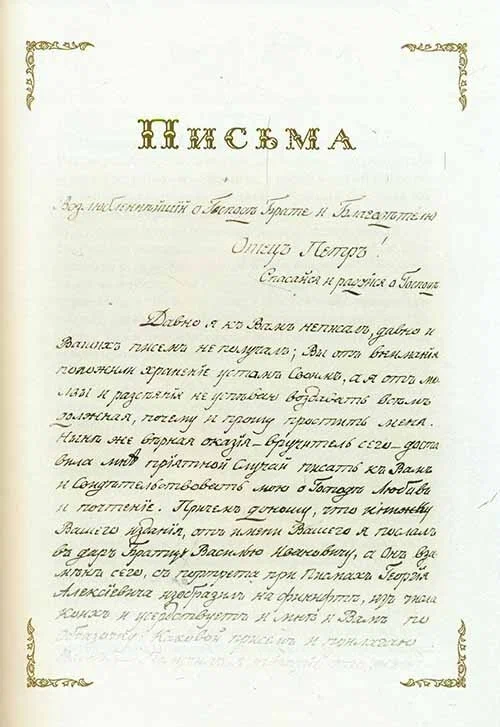 Письма
Возлюбленнѣйшій о Господѣ Брате и Благодѣтелю
Отецъ Петръ!
Спасайся и радуйся о Господѣ
Давно я къ Вамъ неписалъ, давно и
Вашихъ писемъ не получалъ; Вы отъ вниманія
положили храненіе устамъ Своимъ, а я отъ мо
лвы и разсѣянія не успѣваю воздавать всѣмъ
должная, почему и прошу простить меня.
Нынѣ же вѣрная оказія – вручитель сего – доста
вила мнѣ пріятной Случай писать къ Вамъ
и Свидѣтельствовать мою о Господѣ Любовь
и почтеніе. Причемъ доношу, что книжку
Вашего изданія, отъ имени Вашего я послалъ
въ даръ Братцу Василью Ивановичу, а Онъ вза
мѣнъ сего, съ портрета при Письмахъ Георгія
Алексѣевича изобразилъ на финифтѣ, изъ числа
коихъ и усердствуетъ и мнѣ и Вамъ по
образочку. Каковой при семъ и прилагаю